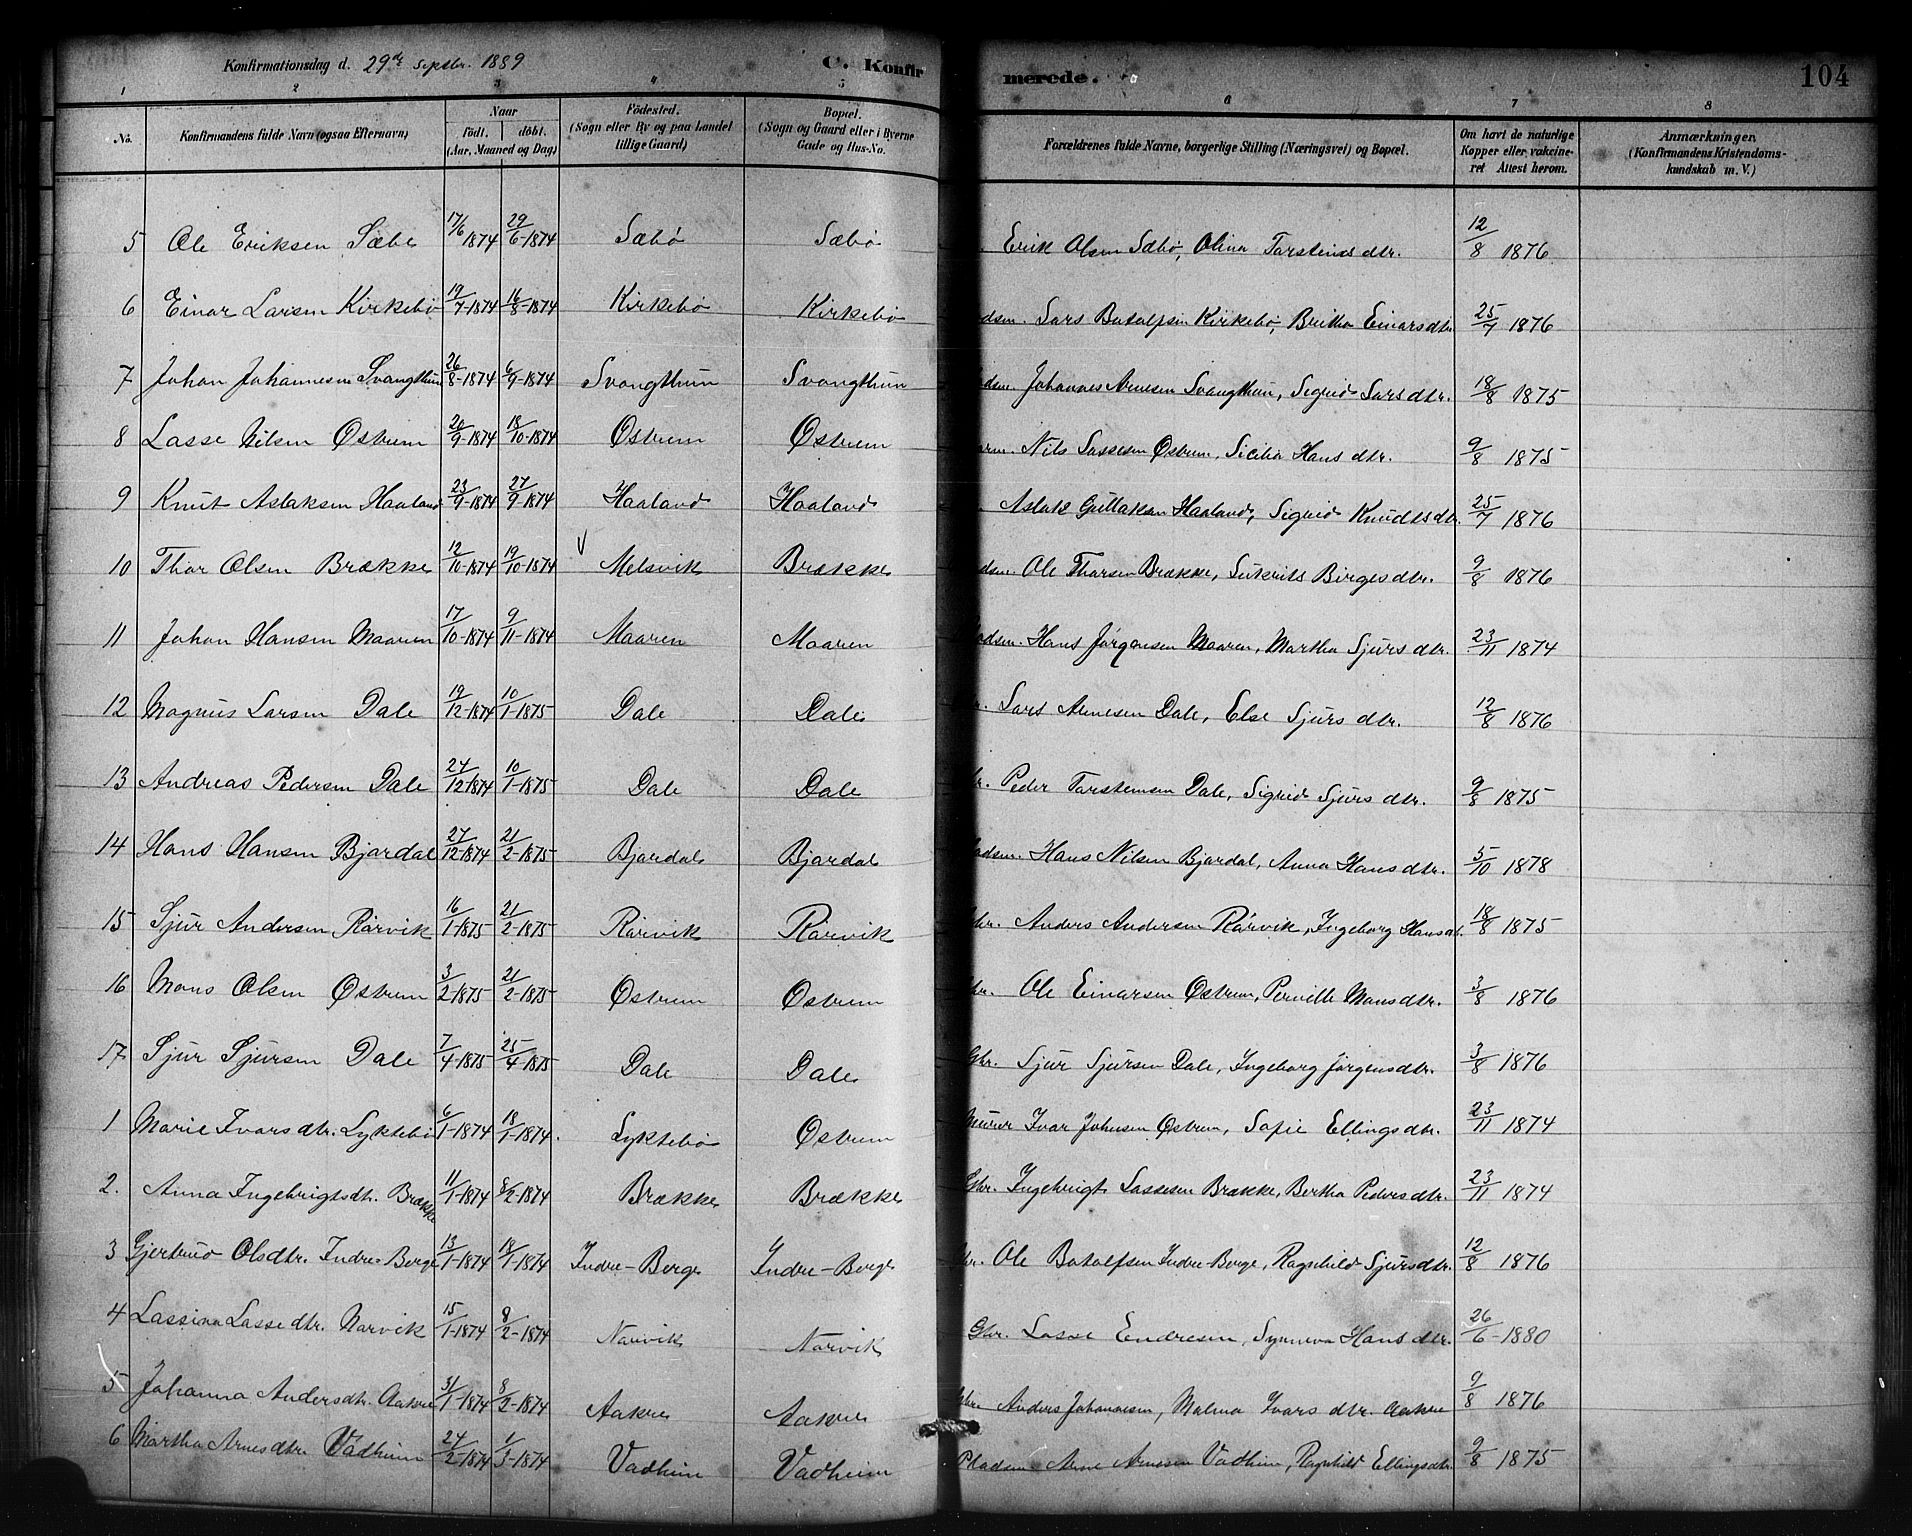 Konfirmationsdag d. 29de Septbr. 1889 C. Konfirmerede. 104
1 2 3 4 5 6 7 8
No. Konfirmandens fulde Navn (ogsaa Efternavn) Naar født. døbt. (Aar, Maaned og Dag) Fødested. (Sogn eller By og paa Landet tillige Gaard) Bopæl. (Sogn og Gaard eller i Byerne Gade og Hus-No. Forældrenes fulde Navne, borgerlige Stilling (Næringsvei) og Bopæl. Om havt de naturlige Kopper eller vakcineret Attest herom. Anmærkninger. (Konfirmandens Kristendomskundskab m. V.)
5 Ole Eriksen Sæbø 17/6 1874 29/6-1874 Sæbø Sæbø Erik Olsen Sæbø, Olina Tarsteinsdtr. 12/8 1876
6 Einar Larsen Kirkebø 19/7-1874 16/8-1874 Kirkebø Kirkebø dsm. Lars Botolfsen Kirkebø, Britha Einarsdtr 25/7 1876
7 Johan Johannesen Svangthun 26/8-1874 6/9-1874 Svangthun Svangthun dsm. Johannes Arnesen Svangthun, Sigrid Larsdtr. 18/8 1875
8 Lasse Nilsen Østrem 20/9-1874 18/10-1874 Østrem Østrem Nils Lassesen Østrem, Sicilia Hansdtr. 9/8 1875
9 Knut Aslaksen Haaland 23/9-1874 27/9-1874 Haaland Haaland Aslak Gullaksen Haaland, Sigrid Knudtsdtr. 25/7 1876
10 Thor Olsen Brække 12/10-1874 19/10-1874 V Melsvik Brække dsm. Ole Thorsen Brække, Birgesdtr. 9/8 1876
11 Johan Hansen Maaren 17/10-1874 9/11-1874 Maaren Maaren adsm. Hans Jørgensen Maaren, Martha Sjursdtr. 23/11 1874
12 Magnus Larsen Dale 19/12-1874 10/1-1875 Dale Dale r. Lars Arnesen Dale, Else Sjursdtr. 12/8 1876
13 Andreas Pedersen Dale 24/12-1874 10/1-1875 Dale Dale r. Peder Tarsteinsen Dale, Sigrid Sjursdtr. 9/8 1875
14 Hans Hansen Bjordal 27/12-1874 21/2-1875 Bjordal Bjordal adsm. Hans Nilsen Bjordal, Anna Hansdtr. 5/10 1878
15 Sjur Andersen Rørvik 16/1-1875 21/2-1875 Rørvik Rørvik Gbr. Anders Andersen Rørvik, Ingeborg Hansdt. 18/8 1875
16 Mons Olsen Østrem 3/2-1875 21/2-1875 Østrem Østrem br. Ole Einarsen Østrem, Pernille Monsdtr. 3/8 1876
17 Sjur Sjursen Dale 7/4-1875 25/4-1875 Dale Dale Gbr. Sjur Sjursen Dale, Ingeborg Jørgensdtr. 3/8 1876
1 Marie Ivarsdtr. Lyktebø 6/1-1874 18/1-1874. Lyktebø Østrem Murer Ivar Johnsen Østrem, Sofie Ellingsdtr. 23/11 1874
2. Anna Ingebrigtsdtr. Brække 11/1-1874 8/2-1874 Brække Brække Gbr. Ingebrigt Lassesen Brække, Bertha Pedersdtr. 23/11 1874
3 Gjertrud Olsdtr. Indre-Berge 13/1-1874 18/1-1874 Indre-Berge Indre-Berge br. Ole Botolfsen Indre-Berge, Ragnhild Sjursdtr. 12/8 1876
4 Lassina Lassedtr. Norvik 15/1-1874 8/2-1874 Norvik Norvik Gbr. Lasse Endresen, Synneva Hansdtr. 26/6-1880
5 Johanna Andersdtr. Aakre 31/1-1874 8/2-1874 Aakre Aakre Gbr Anders Johannesen, Malena Ivarsdtr. Aakre 9/8 1876
6 Martha Arnesdtr Vadheim 24/2-1874 1/3-1874 Vadheim Vadheim Pladsm Arne Arnesen Vadheim, Ragnhild Ellingsdtr. 9/8 1875